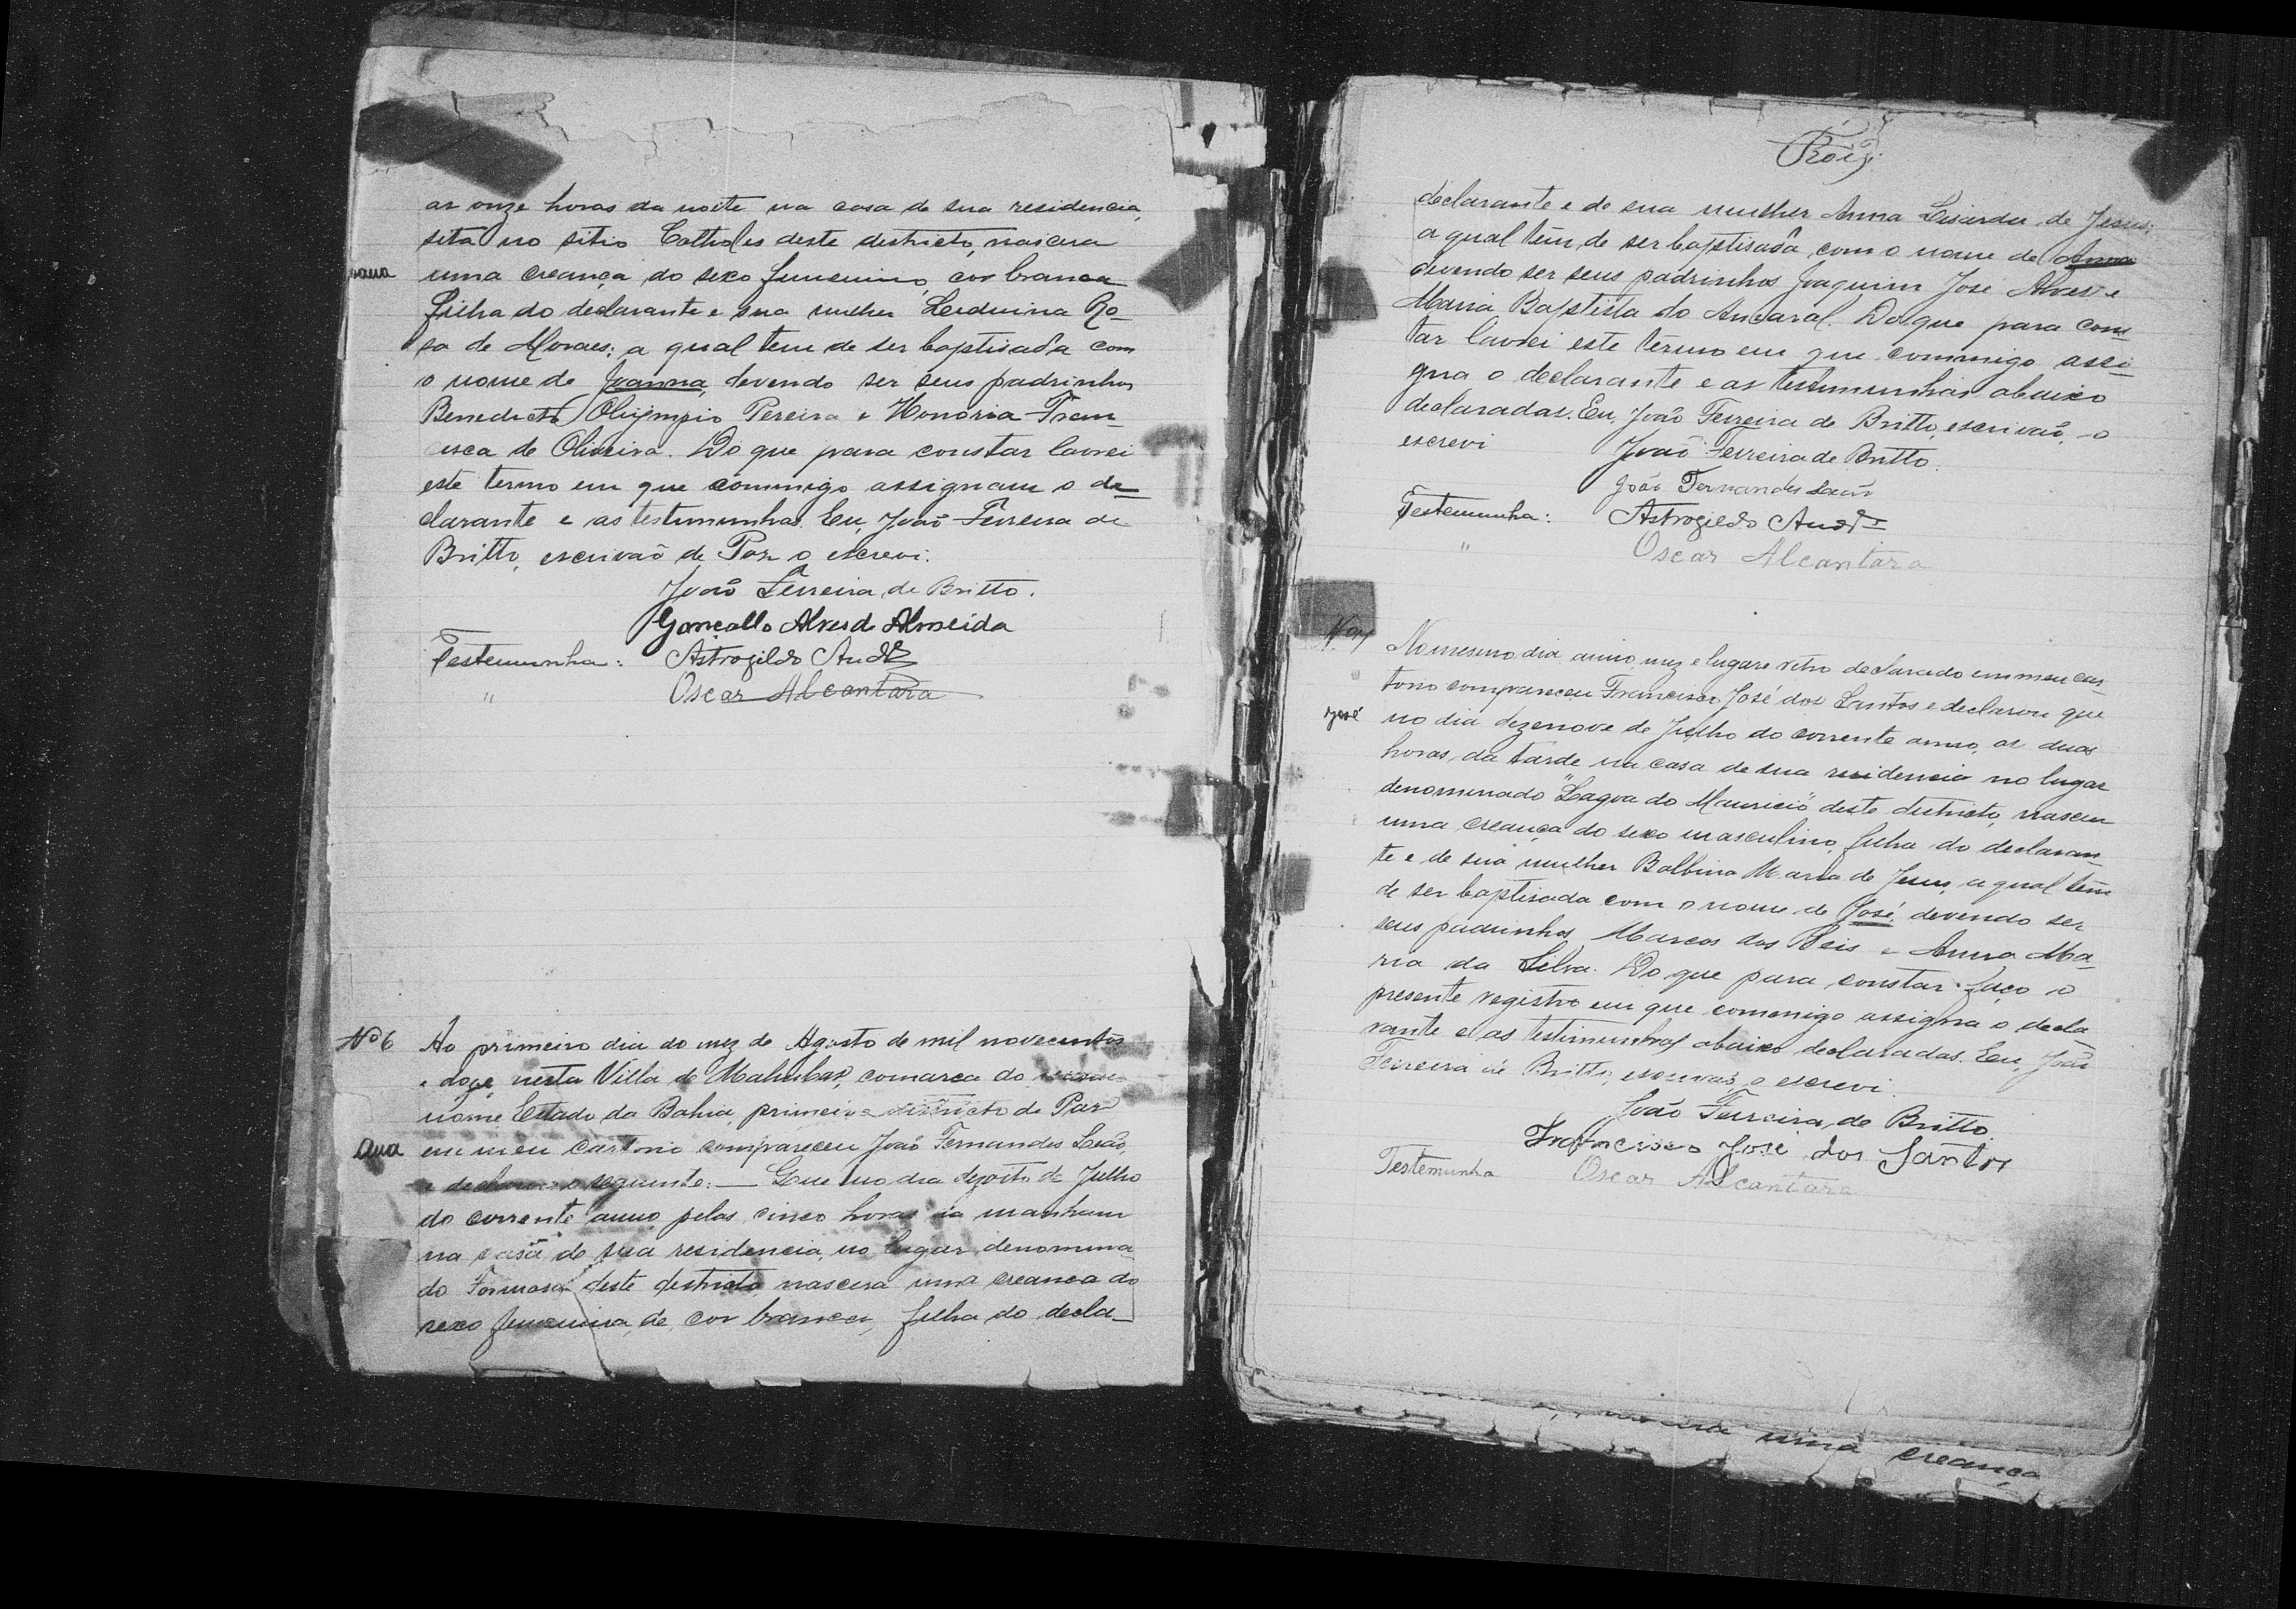 as onze horas da noite na casa de sua residencia,
sita no sitio Catholes deste destricto, nascera
uma creança do sexo femenino, cor branca
filha do declarante e sua mulher Leduina Ro-
sa de Moraes; a qual tem de ser baptisada com
o nome de Joanna, devendo ser seus padrinhos
Benedicto Olijmpio Pereira e Honoria Fran-
cisca de Oliveira. Do que para constar lavrei
este termo em que commigo assignam o de-
clarante e as testimunhas. Eu, João Ferreira de
Britto, escrivão de Paz o escrevi.
João Ferreira de Britto.
Gonçallo Alves d Almeida
Testemunha: Astrogildo
" Oscar Alcantara
Nº 6
Ao primeiro dia do mez de Agosto de mil novecentos
e doze, nesta Villa de comarca do
nome Estado da Bahia, primeiro districto de Paz
Ana
em meu cartorio compareceu João Fernandes Leão,
e declarou o seguinte: — Que no dia dezoito de Julho
do corrente anno, pelas cinco horas da manham
na casa de sua residencia, no lugar denomina
do Formosa deste destricto, nascera uma creanca do
sexo femenina, de cor branca, filha do decla-
declarante e de sua mulher Anna de Jesus;
a qual tem de ser baptisada com o nome de Anna
devendo ser seus padrinhos Joaquim José Alves e
Maria Baptista do Amaral. Do que para cons-
tar lavrei este termo em que commigo assi-
gna o declarante e as testimunhas abaixo
declaradas. Eu, João Ferreira de Britto, escrivão, o
escrevi
João Ferreira de Britto.
João Fernandes Leão
Testemunha: Astrogildo
" Oscar Alcantara
No mesmo dia, anno, mez e lugar retro declarado em meu car-
torio compareceu Francisco José dos Santos e declarou que
José
no dia dezenove de Julho do corrente anno, as duas
horas da tarde na casa de sua residencia no lugar
denominado "Lagoa do Mauricio" deste destricto, nasceu
uma creança do sexo masculino, filha do declaran-
te e de sua mulher Balbina Maria de Jesus, a qual tem
de ser baptisada com o nome de José, devendo ser
seus padrinhos Marcos dos Reis e Anna Ma-
ria da Silva. Do que para constar faço o
presente registro em que comenigo assigna o decla
rante e as testimunhas abaixo declaradas. Eu, João
Ferreira de Britto, escrivão, o escrevi.
João Ferreira de Britto.
Francisco José dos Santos
Testemunha Oscar Alcantara
uma creança